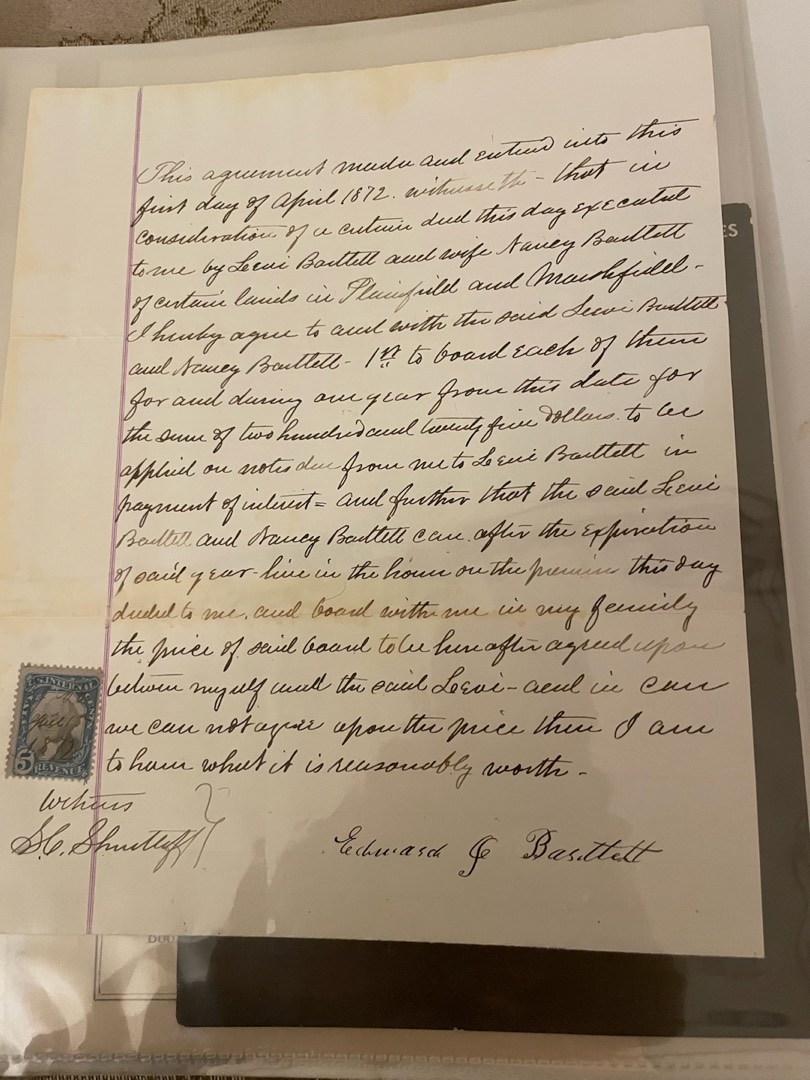 This agreement made and entered into this
first day of April 1872. witnesseth - that in
consideration of a certain deed this day executed
to me by Levi Bartlett and wife Nancy Bartlett
of certain lands in Plainfield and Marshfield -
I hereby agree to and with the said Levi Bartlett
and Nancy Bartlett - 1st to board each of them
for and during one year from this date for
the sum of two hundred and twenty five dollars. to be
applied on notes due from me to Levi Bartlett in
payment of interest = and further that the said Levi
Bartlett and Nancy Bartlett can after the expiration
of said year - live in the house on the premises this day
deeded to me. and board with me in my family
the price of said board to be hereafter agreed upon
between myself and the said Levi - and in case
we can not agree upon the price then I am
to have what it is reasonably worth -
U.S. INTERNAL
5 REVENUE
Witness
S.C. Shurtleff
Edward J Bartlett
ES